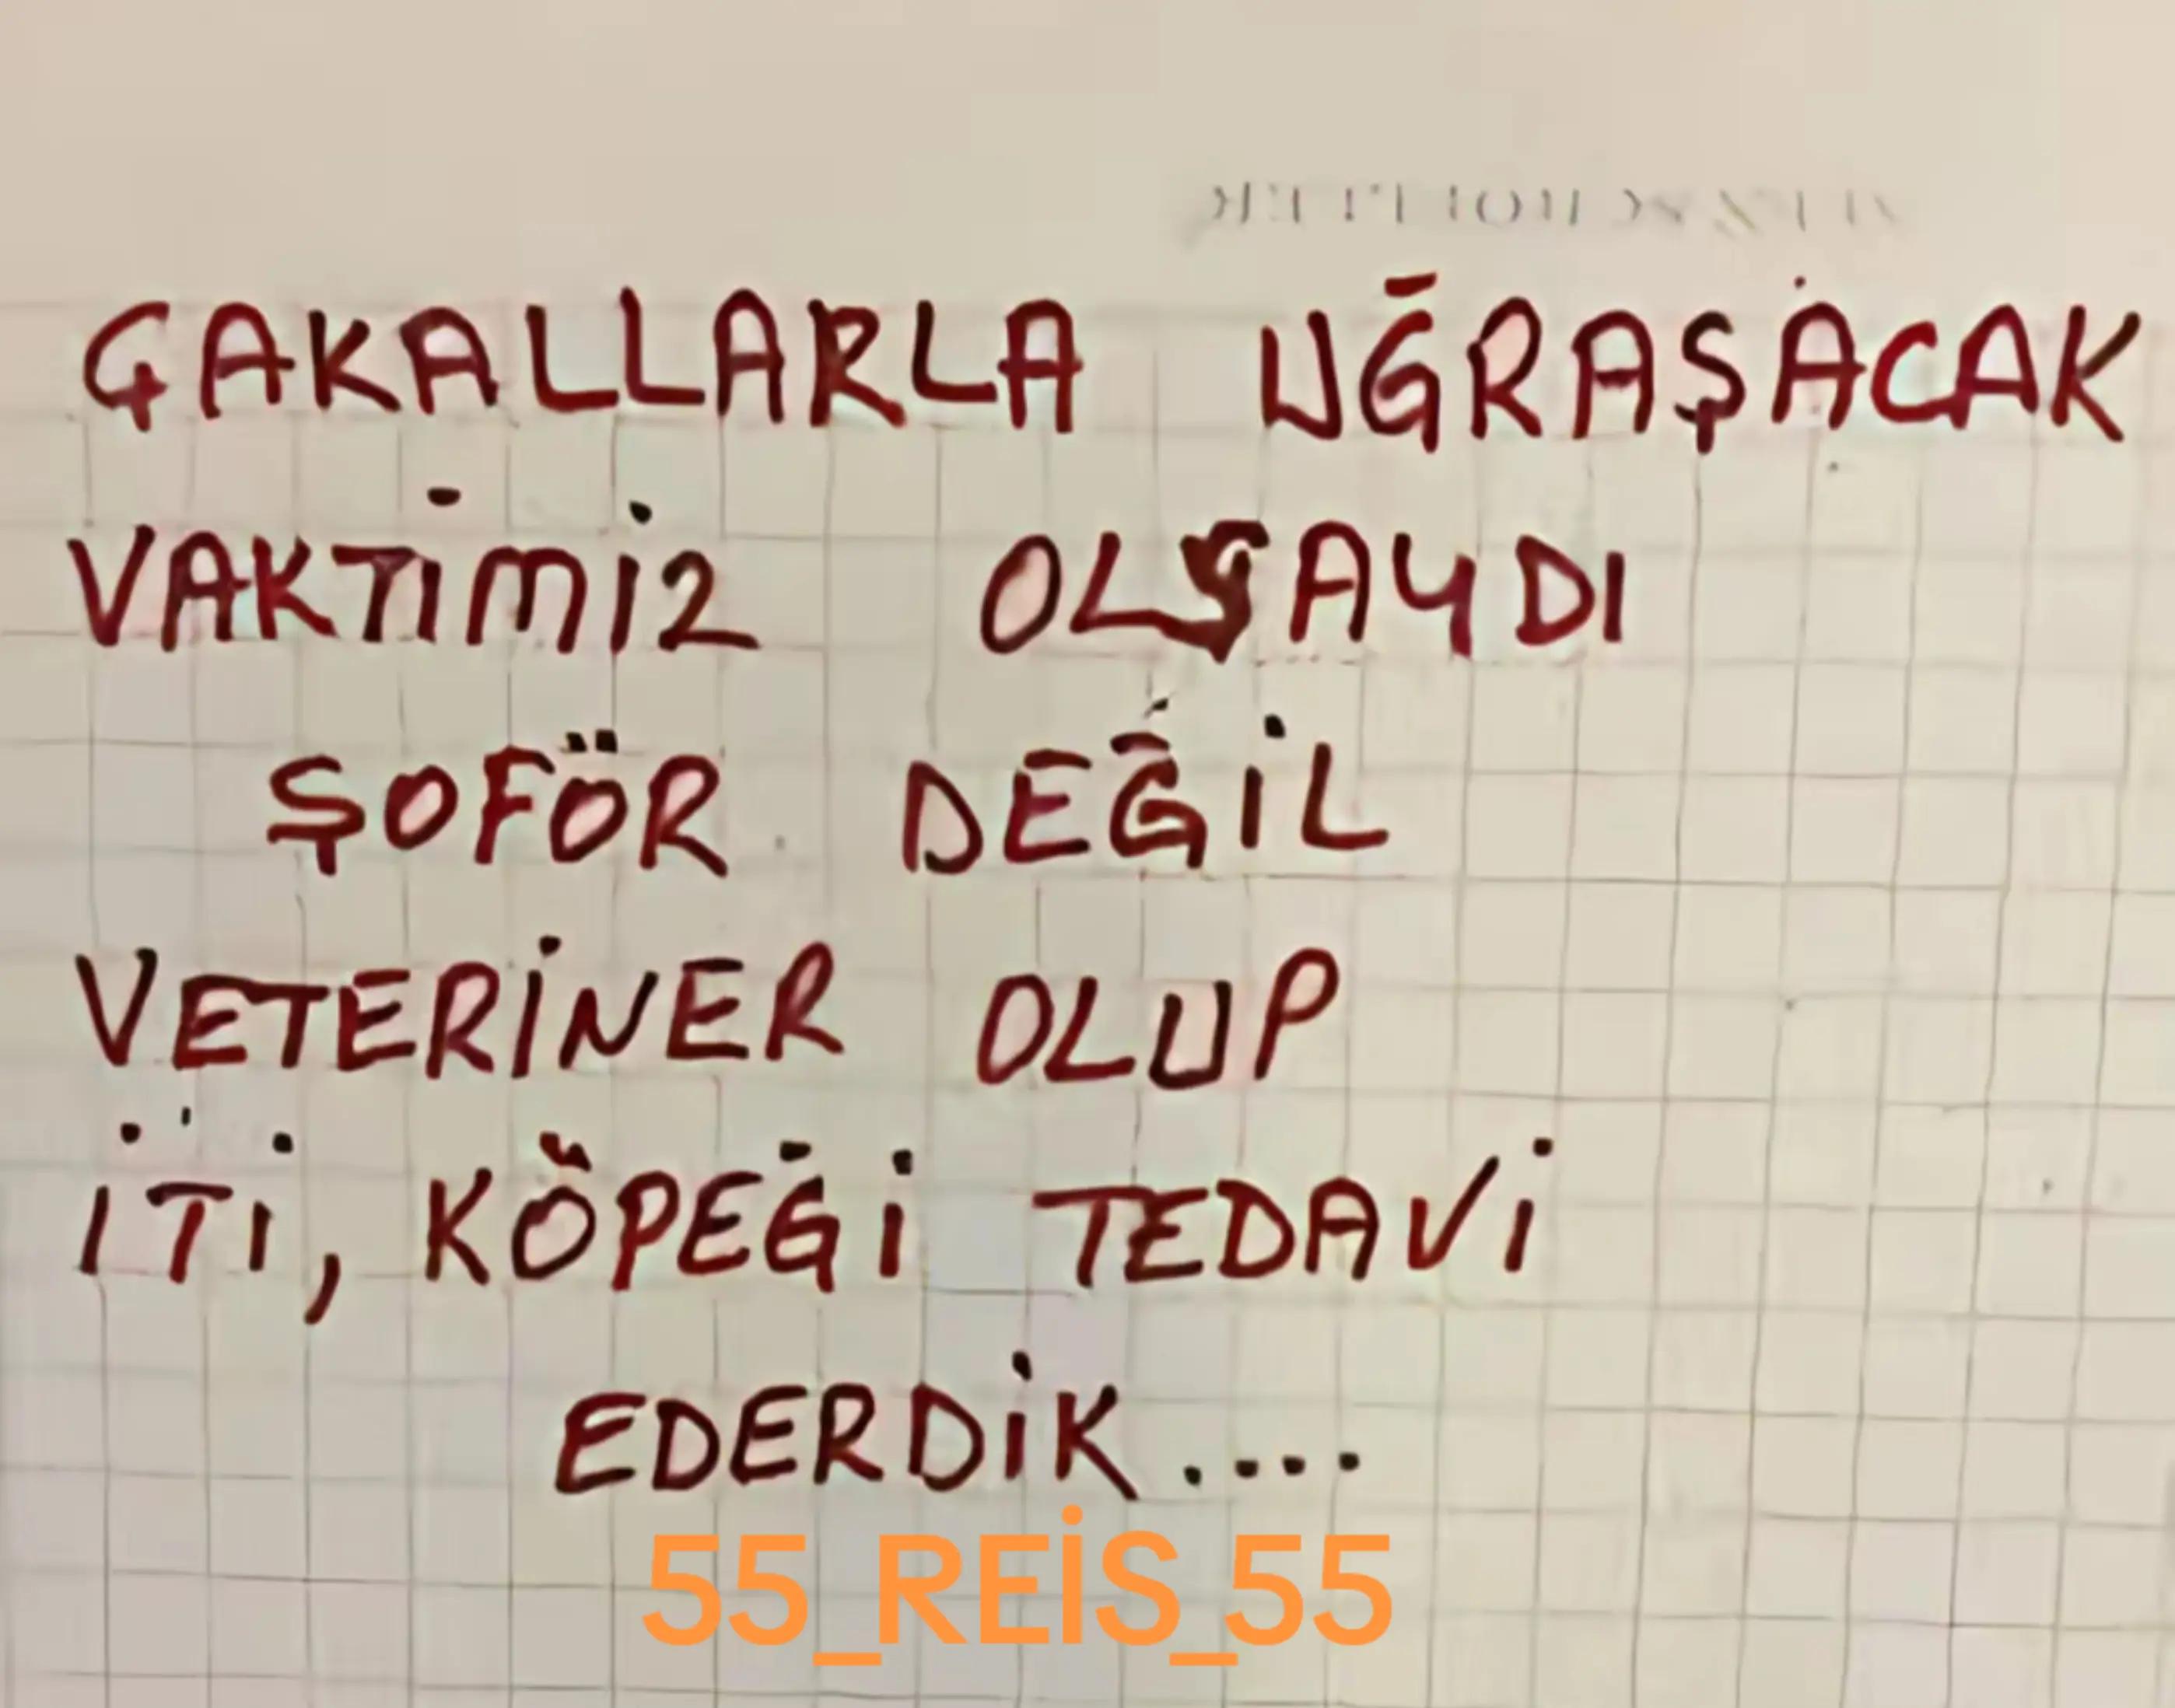 ÇAKALLARLA UĞRAŞACAK
VAKTİMİZ OLSAYDI
ŞOFÖR DEĞİL
VETERİNER OLUP
İTİ, KÖPEĞİ TEDAVİ
EDERDİK....
55_REİS_55